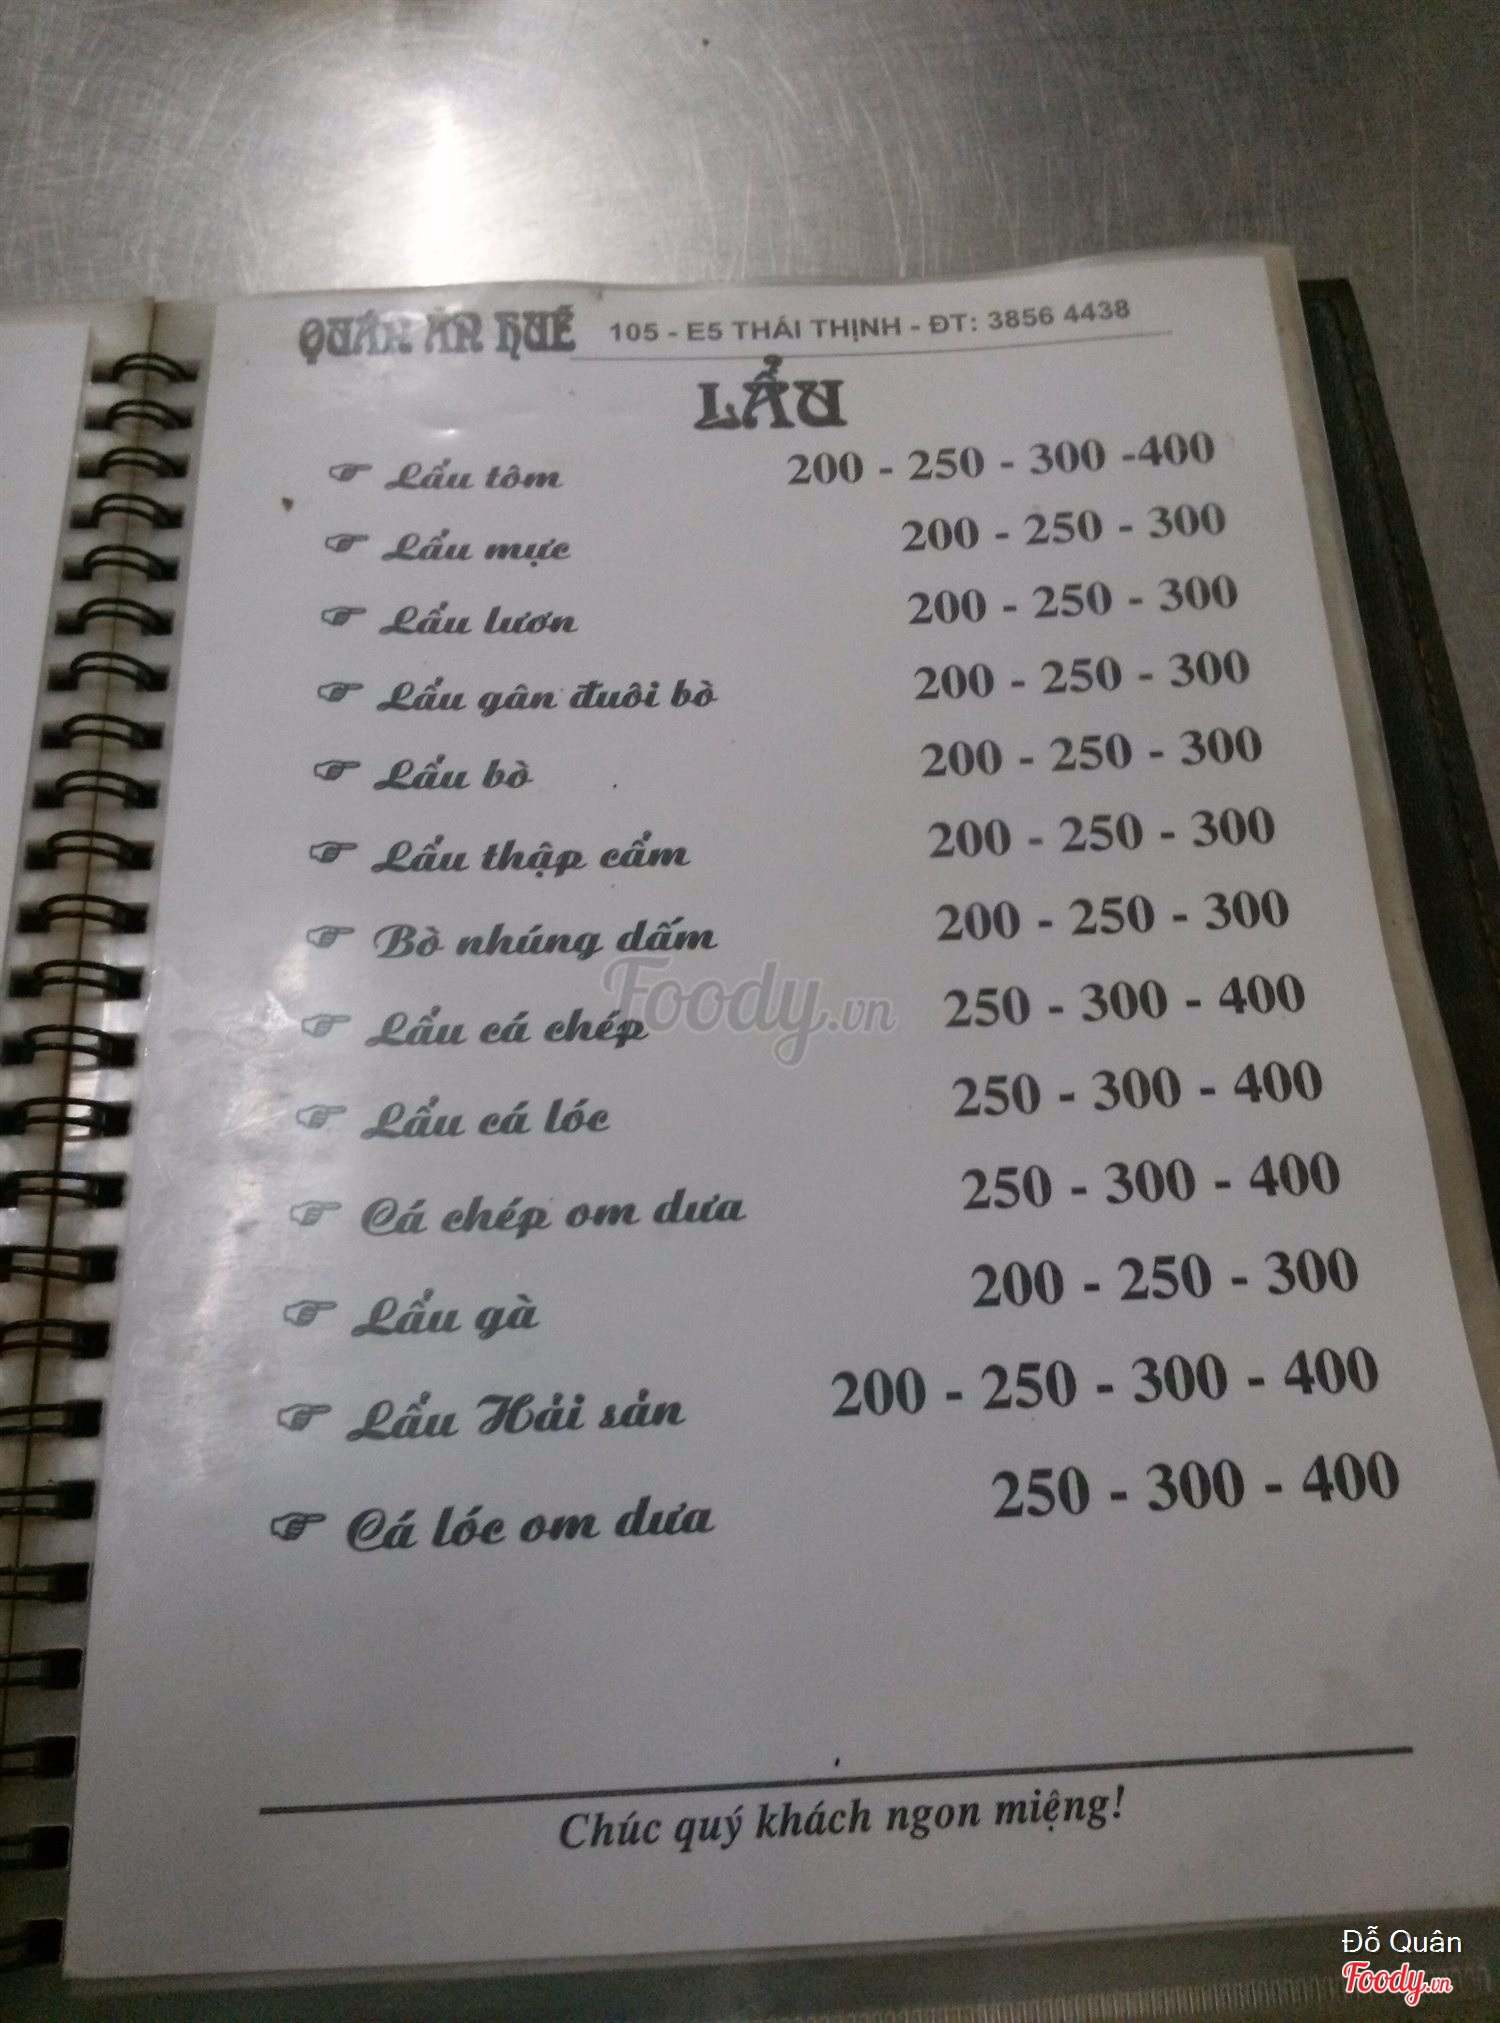 QUÁN ĂN HUẾ 105 - E5 THÁI THỊNH - ĐT: 3856 4438
LẨU
Lẩu tôm 200 - 250 - 300 -400
Lẩu mực 200 - 250 - 300
Lẩu lươn 200 - 250 - 300
Lẩu gân đuôi bò 200 - 250 - 300
Lẩu bò 200 - 250 - 300
Lẩu thập cẩm 200 - 250 - 300
Bò nhúng dấm 200 - 250 - 300
Lẩu cá chép 250 - 300 - 400
Lẩu cá lóc 250 - 300 - 400
Cá chép om dưa 250 - 300 - 400
Lẩu gà 200 - 250 - 300
Lẩu Hải sản 200 - 250 - 300 - 400
Cá lóc om dưa 250 - 300 - 400
Chúc quý khách ngon miệng!
Foody.vn
Đỗ Quân
Foody.vn